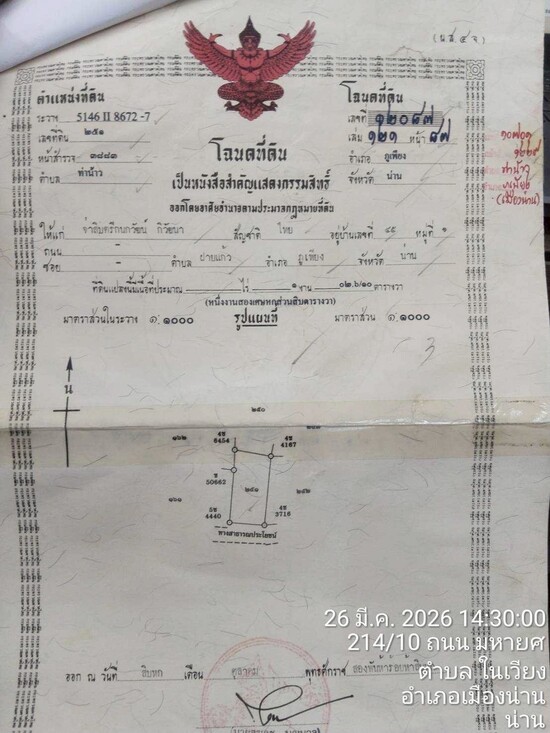 (น.ส. ๔ จ)
ตำแหน่งที่ดิน
ระวาง 5146 II 8672 -7
เลขที่ดิน ๒๕๑
หน้าสำรวจ ๓๘๘๓
ตำบล ท่าน้าว
โฉนดที่ดิน
เลขที่ ๑๒๐๘๗
เล่ม ๑๒๑ หน้า ๘๗
อำเภอ ภูเพียง
จังหวัด น่าน
ท่าน้าว
ภูเพียง
(เมืองน่าน)
โฉนดที่ดิน
เป็นหนังสือสำคัญแสดงกรรมสิทธิ์
ออกโดยอาศัยอำนาจตามประมวลกฎหมายที่ดิน
ให้แก่ สัญชาติ ไทย อยู่บ้านเลขที่ ๔๕ หมู่ที่
ถนน -
ซอย - ตำบล ฝายแก้ว อำเภอ ภูเพียง จังหวัด น่าน
ที่ดินแปลงนี้มีเนื้อที่ประมาณ - ไร่ ๑ งาน ๐๒.๖/๑๐ ตารางวา
(หนึ่งงานสองเศษหกส่วนสิบตารางวา)
มาตราส่วนในระวาง ๑:๑๐๐๐ รูปแผนที่ มาตราส่วน ๑:๑๐๐๐
น
๒๕๐
๑๖๒
4ช
6454
4ช
4167
ช
50662
๑๖๑
๒๕๑
๒๕๒
5ช
4440
4ช
3716
ทางสาธารณประโยชน์
ออก ณ วันที่ สิบหก เดือน ตุลาคม พุทธศักราช
26 มี.ค. 2026 14:30:00
214/10 ถนน มหายศ
ตำบล ในเวียง
อำเภอเมืองน่าน
น่าน